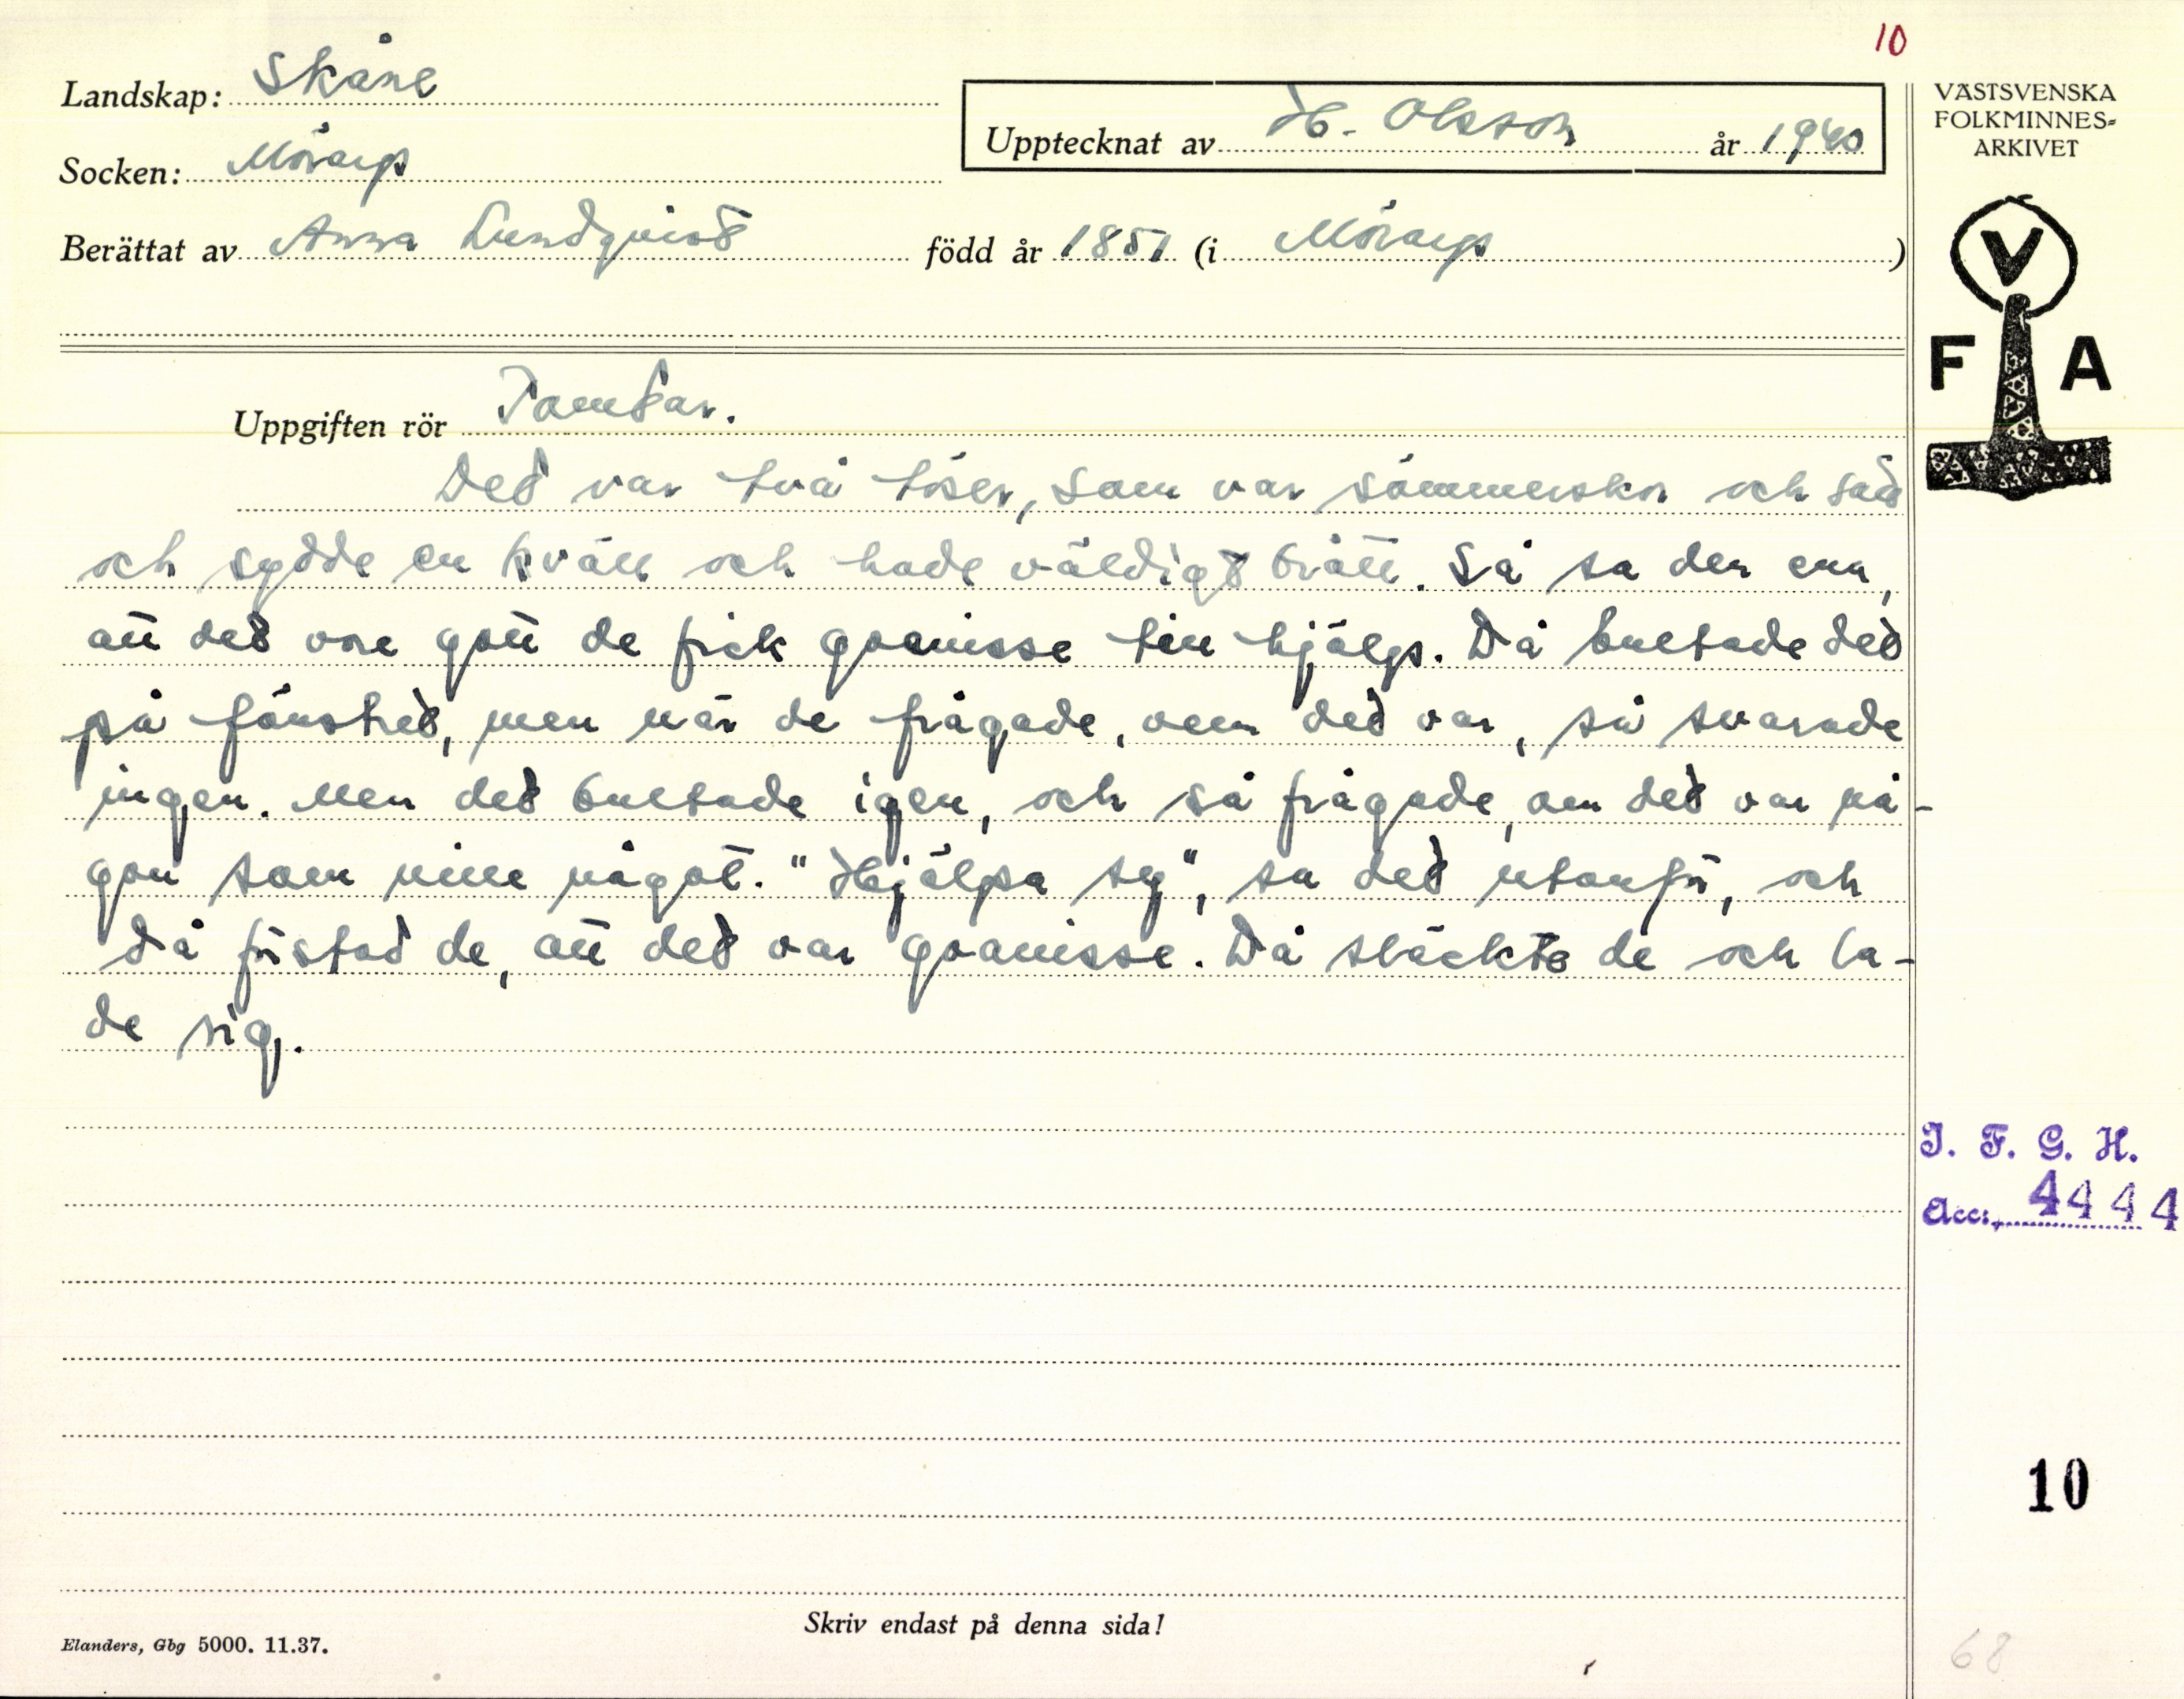 10
Landskap: Skåne
Socken: Mörarp
Upptecknat av H. Olsson år 1940
Berättat av Anna Lundqvist född år 1851 (i Mörarp )
VÄSTSVENSKA
FOLKMINNES-
ARKIVET
V
F A
Uppgiften rör Tomtar.
Det var två töser, som var sömmerskor och satt
och sydde en kväll och hade väldigt brått. Så sa den ena,
att det vore gott de fick goanisse till hjälp. Då bultade det
på fönstret, men när de frågade, vem det var, så svarade
ingen. Men det bultade igen, och så frågade, om det var nå-
gon som ville något. "Hjälpa sy", sa det utanför, och
då förstod de, att det var goanisse. Då släckte de och la-
de sig.
I. F. G. H.
Acc. 4444
10
Skriv endast på denna sida!
Elanders, Gbg 5000. 11.37.
68